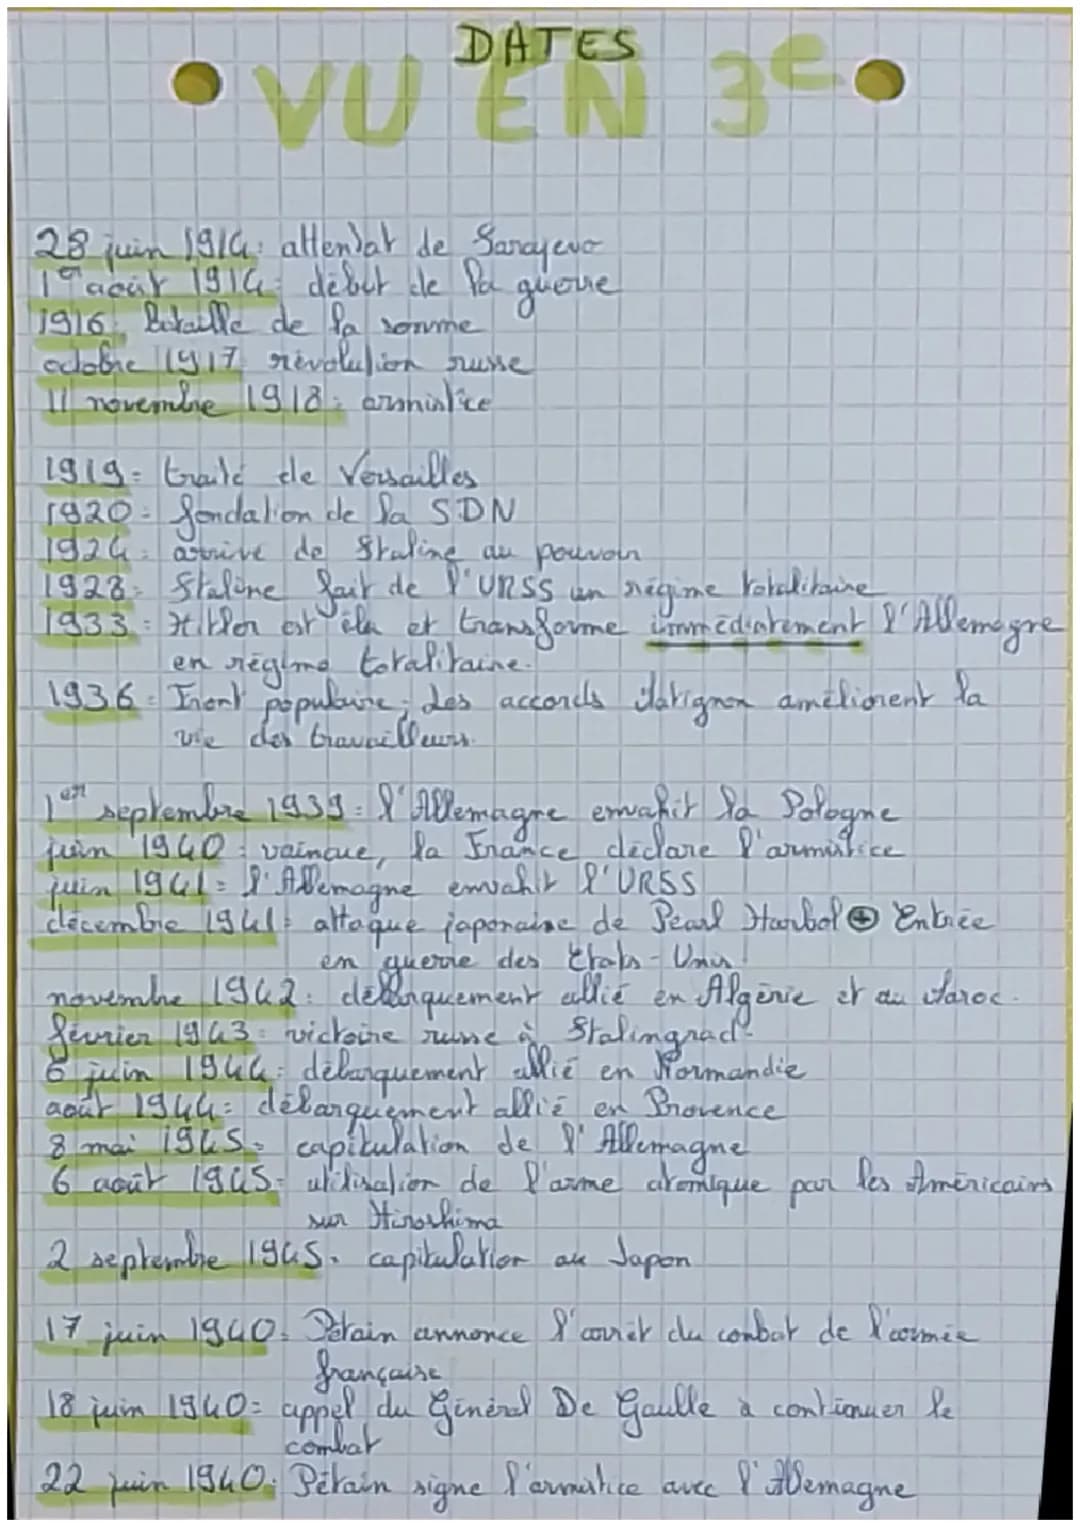 DATES
VU EN 3e
28 juin 1914: attentat de Sarajevo
1er août 1914: début de la guerre
1916: Bataille de la somme
octobre 1917: révolution russe
11 novembre 1918: armistice
1919: traité de Versailles
1920: fondation de la SDN
1924: arrivé de Staline au pouvoir
1928: Staline fait de l'URSS un régime totalitaire
1933: Hitler est élu et transforme immédiatement l'Allemagne
en régime totalitaire.
1936: Front populaire; des accords Matignon améliorent la
vie des travailleurs.
1er septembre 1939: l'Allemagne envahit la Pologne
juin 1940: vaincue, la France déclare l'armistice
juin 1941: l'Allemagne envahit l'URSS
décembre 1941: attaque japonaise de Pearl Harbol + Entrée
en guerre des Etats-Unis.
novembre 1942: débarquement allié en Algérie et au Maroc.
février 1943: victoire russe à Stalingrad.
6 juin 1944: débarquement allié en Normandie
août 1944: débarquement allié en Provence
8 mai 1945: capitulation de l'Allemagne
6 août 1945: utilisation de l'arme atomique par les Américains
sur Hiroshima
2 septembre 1945: capitulation au Japon
17 juin 1940: Pétain annonce l'arrêt du combat de l'armée
française
18 juin 1940: appel du Général De Gaulle à continuer le
combat
22 juin 1940: Pétain signe l'armistice avec l'Allemagne